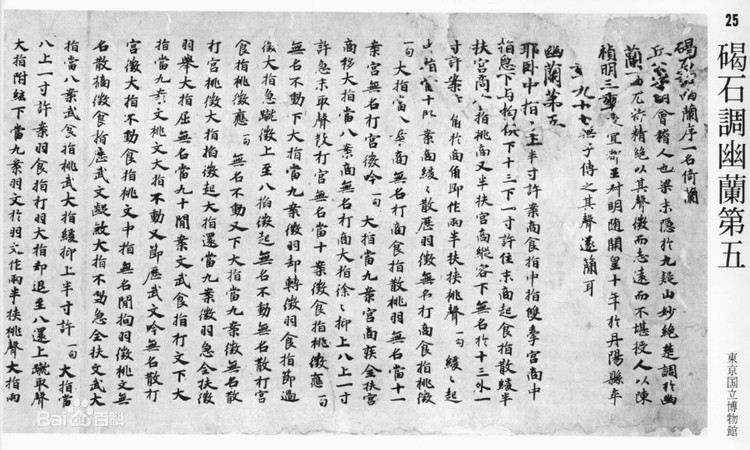 25
碣石調幽蘭第五
東京国立博物館
碣石調幽蘭序一名倚蘭
丘公字明會稽人也梁末隱於九疑山妙絕楚調於幽
蘭一曲尤特精絕以其聲微而志遠而不堪授人以陳
禎明三年授宜都王叔明隨開皇十年於丹陽縣卒
年九十七無子傳之其聲遂簡耳
幽蘭第五
耶卧中指十上半寸許案商食指中指雙牽宮商中
指急下与拘俱下十三下一寸許住末商起食指散緩半
扶宮商食指挑商又半扶宮商縱容下無名於十三外一
寸許案商角於商角即作兩半扶挾挑聲一句 緩〻起
案商緩〻散歷羽徵無名打商食指挑徵
一句 大指當八案商無名打商食指散挑羽無名當十一
案宮無名打宮徵吟一句 大指當九案宮商疾全扶宮
商移大指當八案商無名打商大指徐〻抑上八上一寸
許急末取聲散打宮無名當十案徵食指挑徵應一句
無名不動下大指當九案徵羽却轉徵羽食指節過
徵大指急蹴徵上至八抬徵起無名不動無名散打宮
食指挑徵應一句 無名不動又下大指當九案徵無名散
打宮徵挑徵大指掐徵起大指還當九案徵羽急全扶徵
羽舉大指屈無名當九十間案文武食指打文下大
指當九案文挑文大指不動又節應武文吟無名散打
宮徵大指不動食指挑文中指無名間拘羽徵挑文無
名散摘徵食指應武文大指不動急全扶文武大
指當八案武食指挑武大指緩抑上半寸許一句 大指當
八上一寸許案羽食指打羽大指却退至八還上蹴取聲
大指附絃下當九案羽文於羽文作兩半扶挾挑聲大指兩
Baidu百科